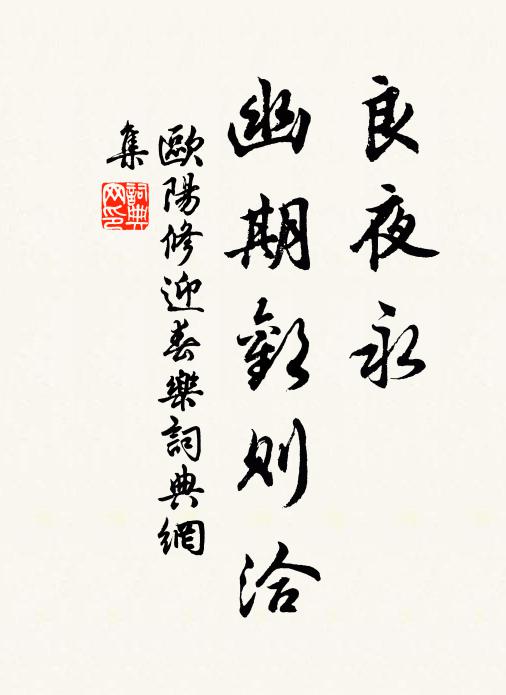 良夜永
幽期歡則洽
歐陽修迎春樂詞典網
集
詞典
网印